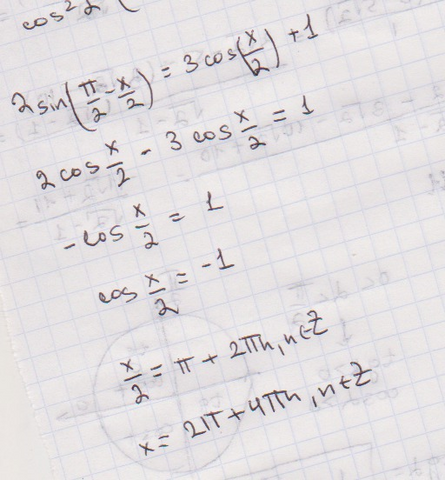 cos² 2 (
2 sin(π/2 - x/2) = 3 cos(x/2) + 1
2 cos x/2 - 3 cos x/2 = 1
- cos x/2 = 1
cos x/2 = -1
x/2 = π + 2πn, n ∈ Z
x = 2π + 4πn, n ∈ Z